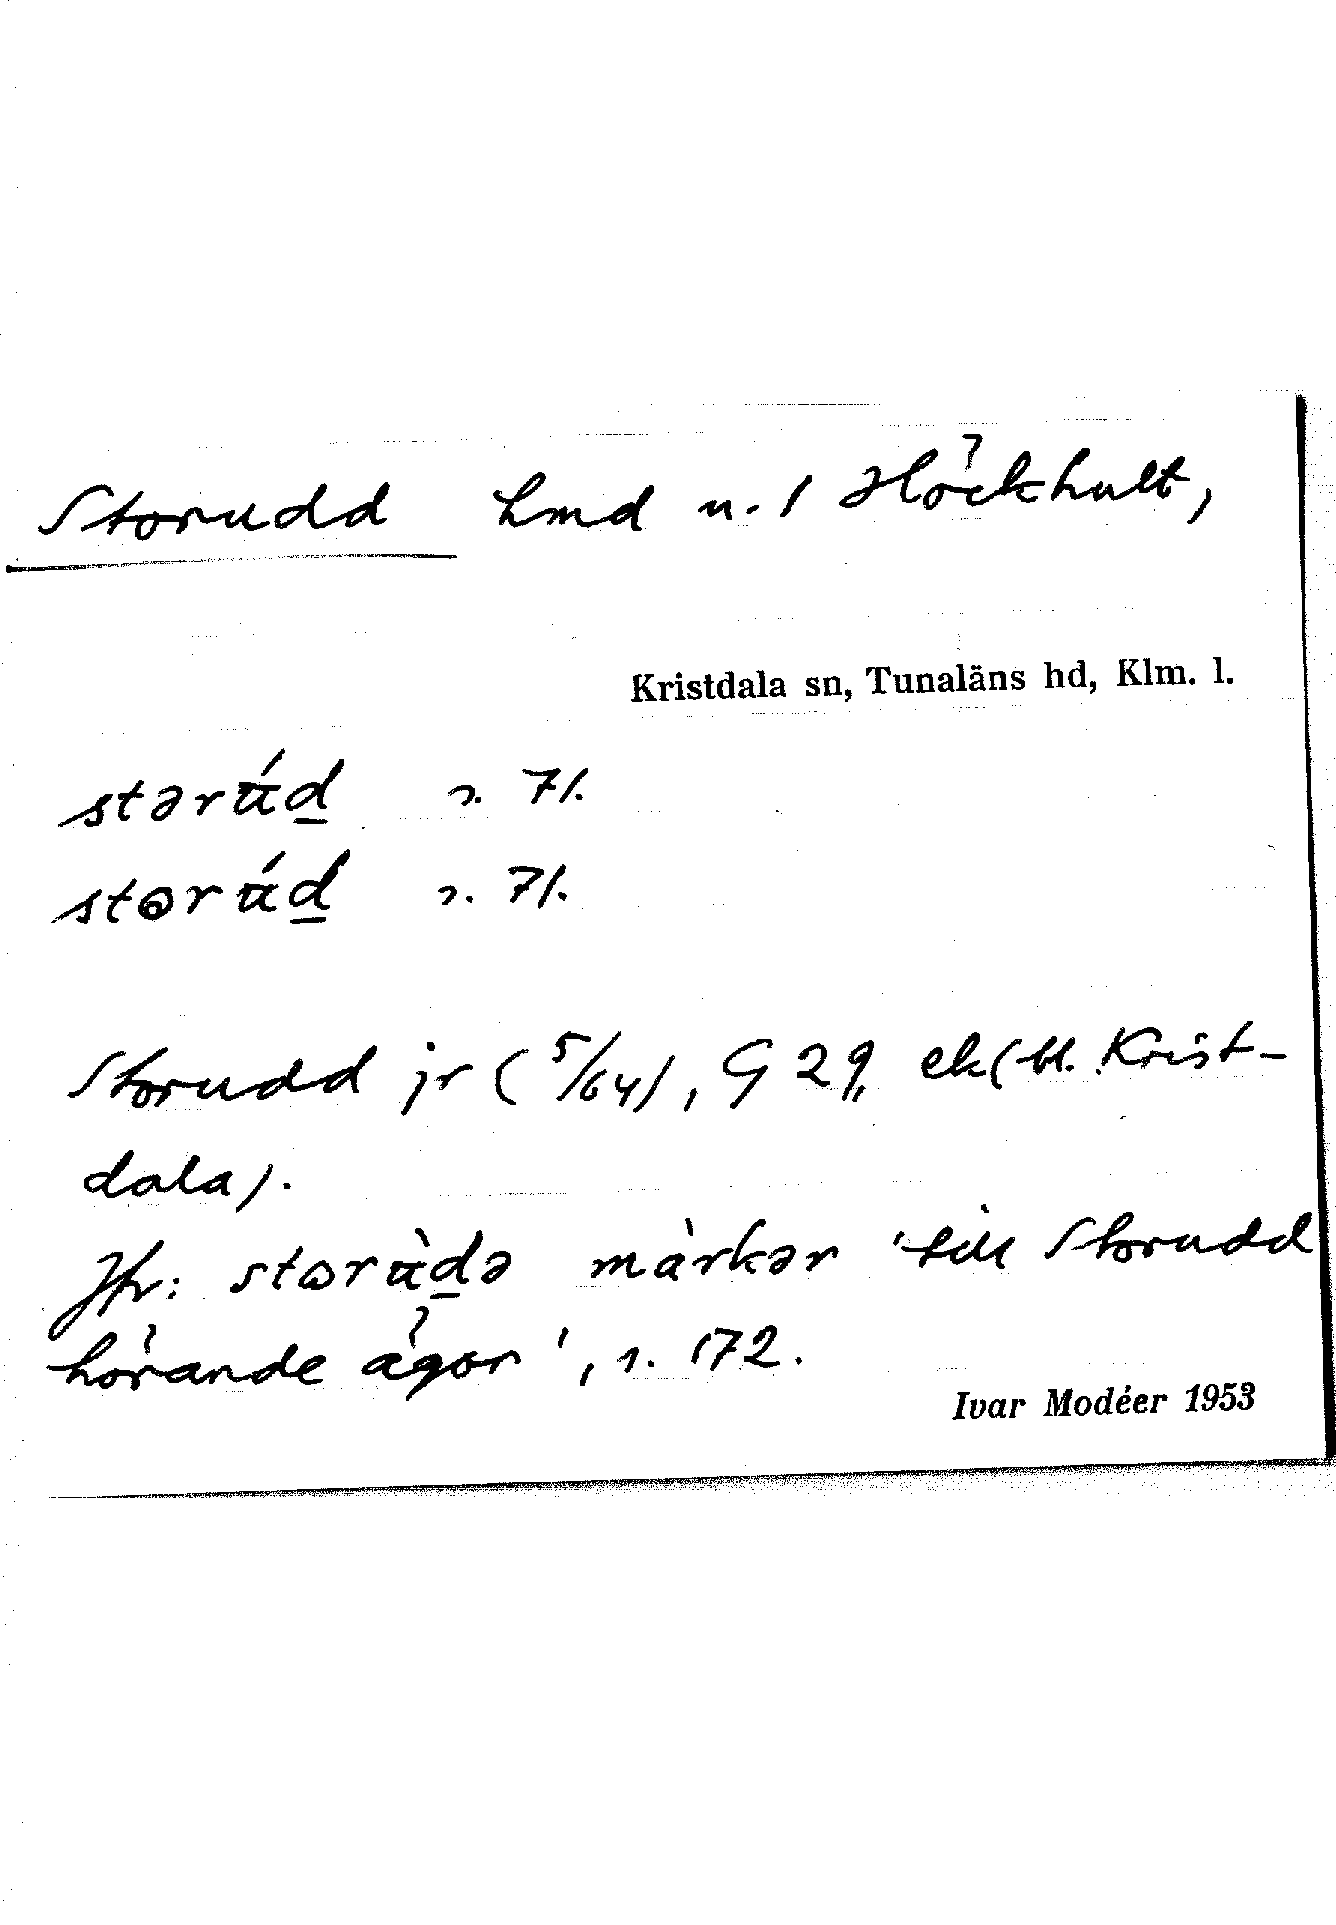 Storudd hmd u. 1 Höckhult,
Kristdala sn, Tunaläns hd, Klm. l.
stərúd̲ s. 71.
stɷrúd̲ s. 71.
Storudd jr (5/64), G 29, ek(bl. Krist-
dala).
Jfr: stɷrùd̲ə màrkər 'till Storudd
hörande ägor', s. 172.
Ivar Modéer 1953